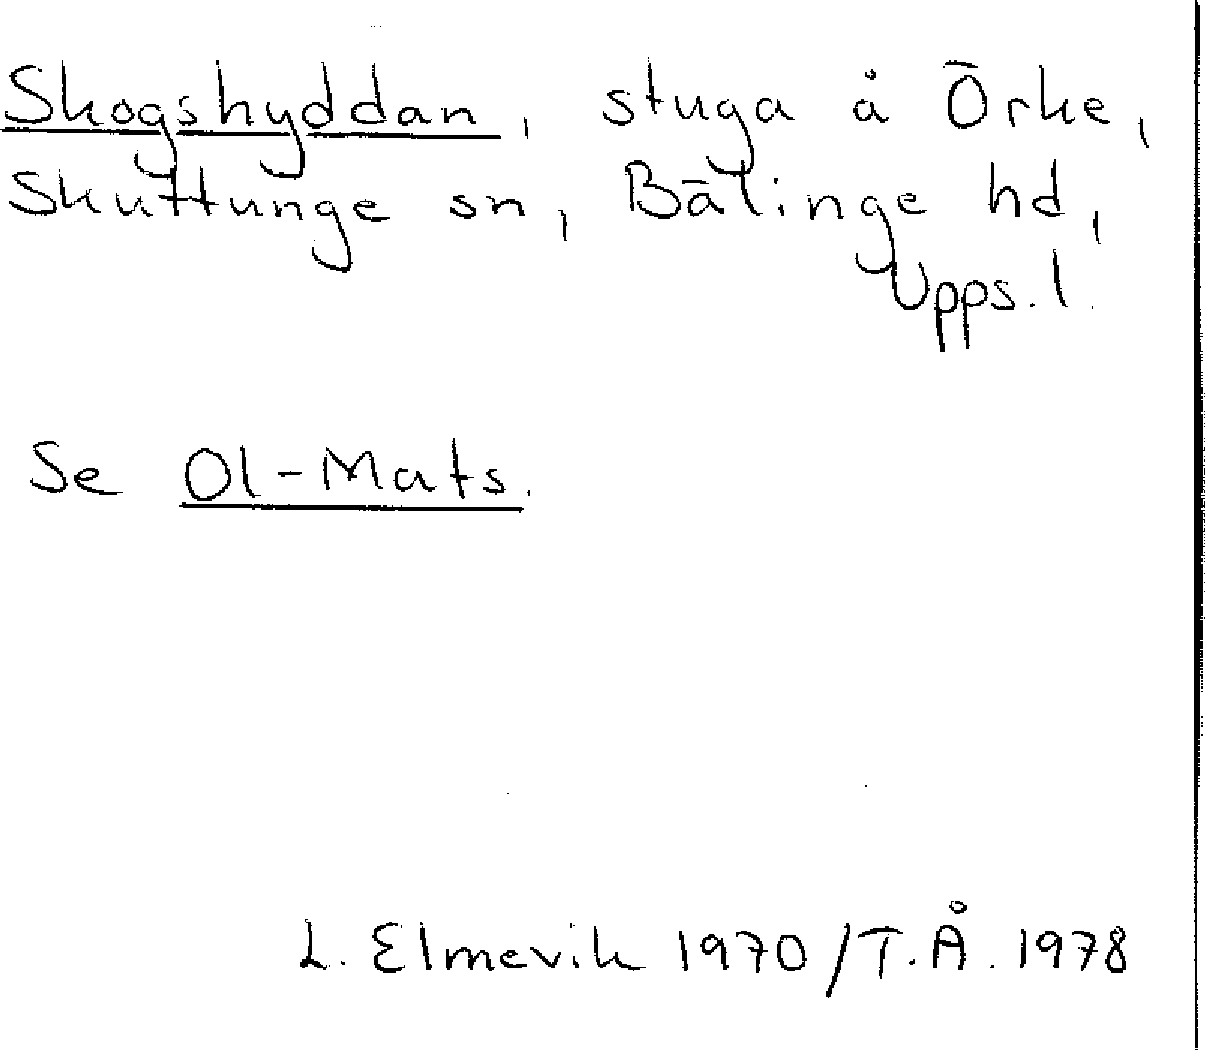 Skogshyddan, stuga å Örke,
Skuttunge sn, Bälinge hd,
Upps. l.
Se Ol-Mats.
L. Elmevik 1970/T.Å. 1978